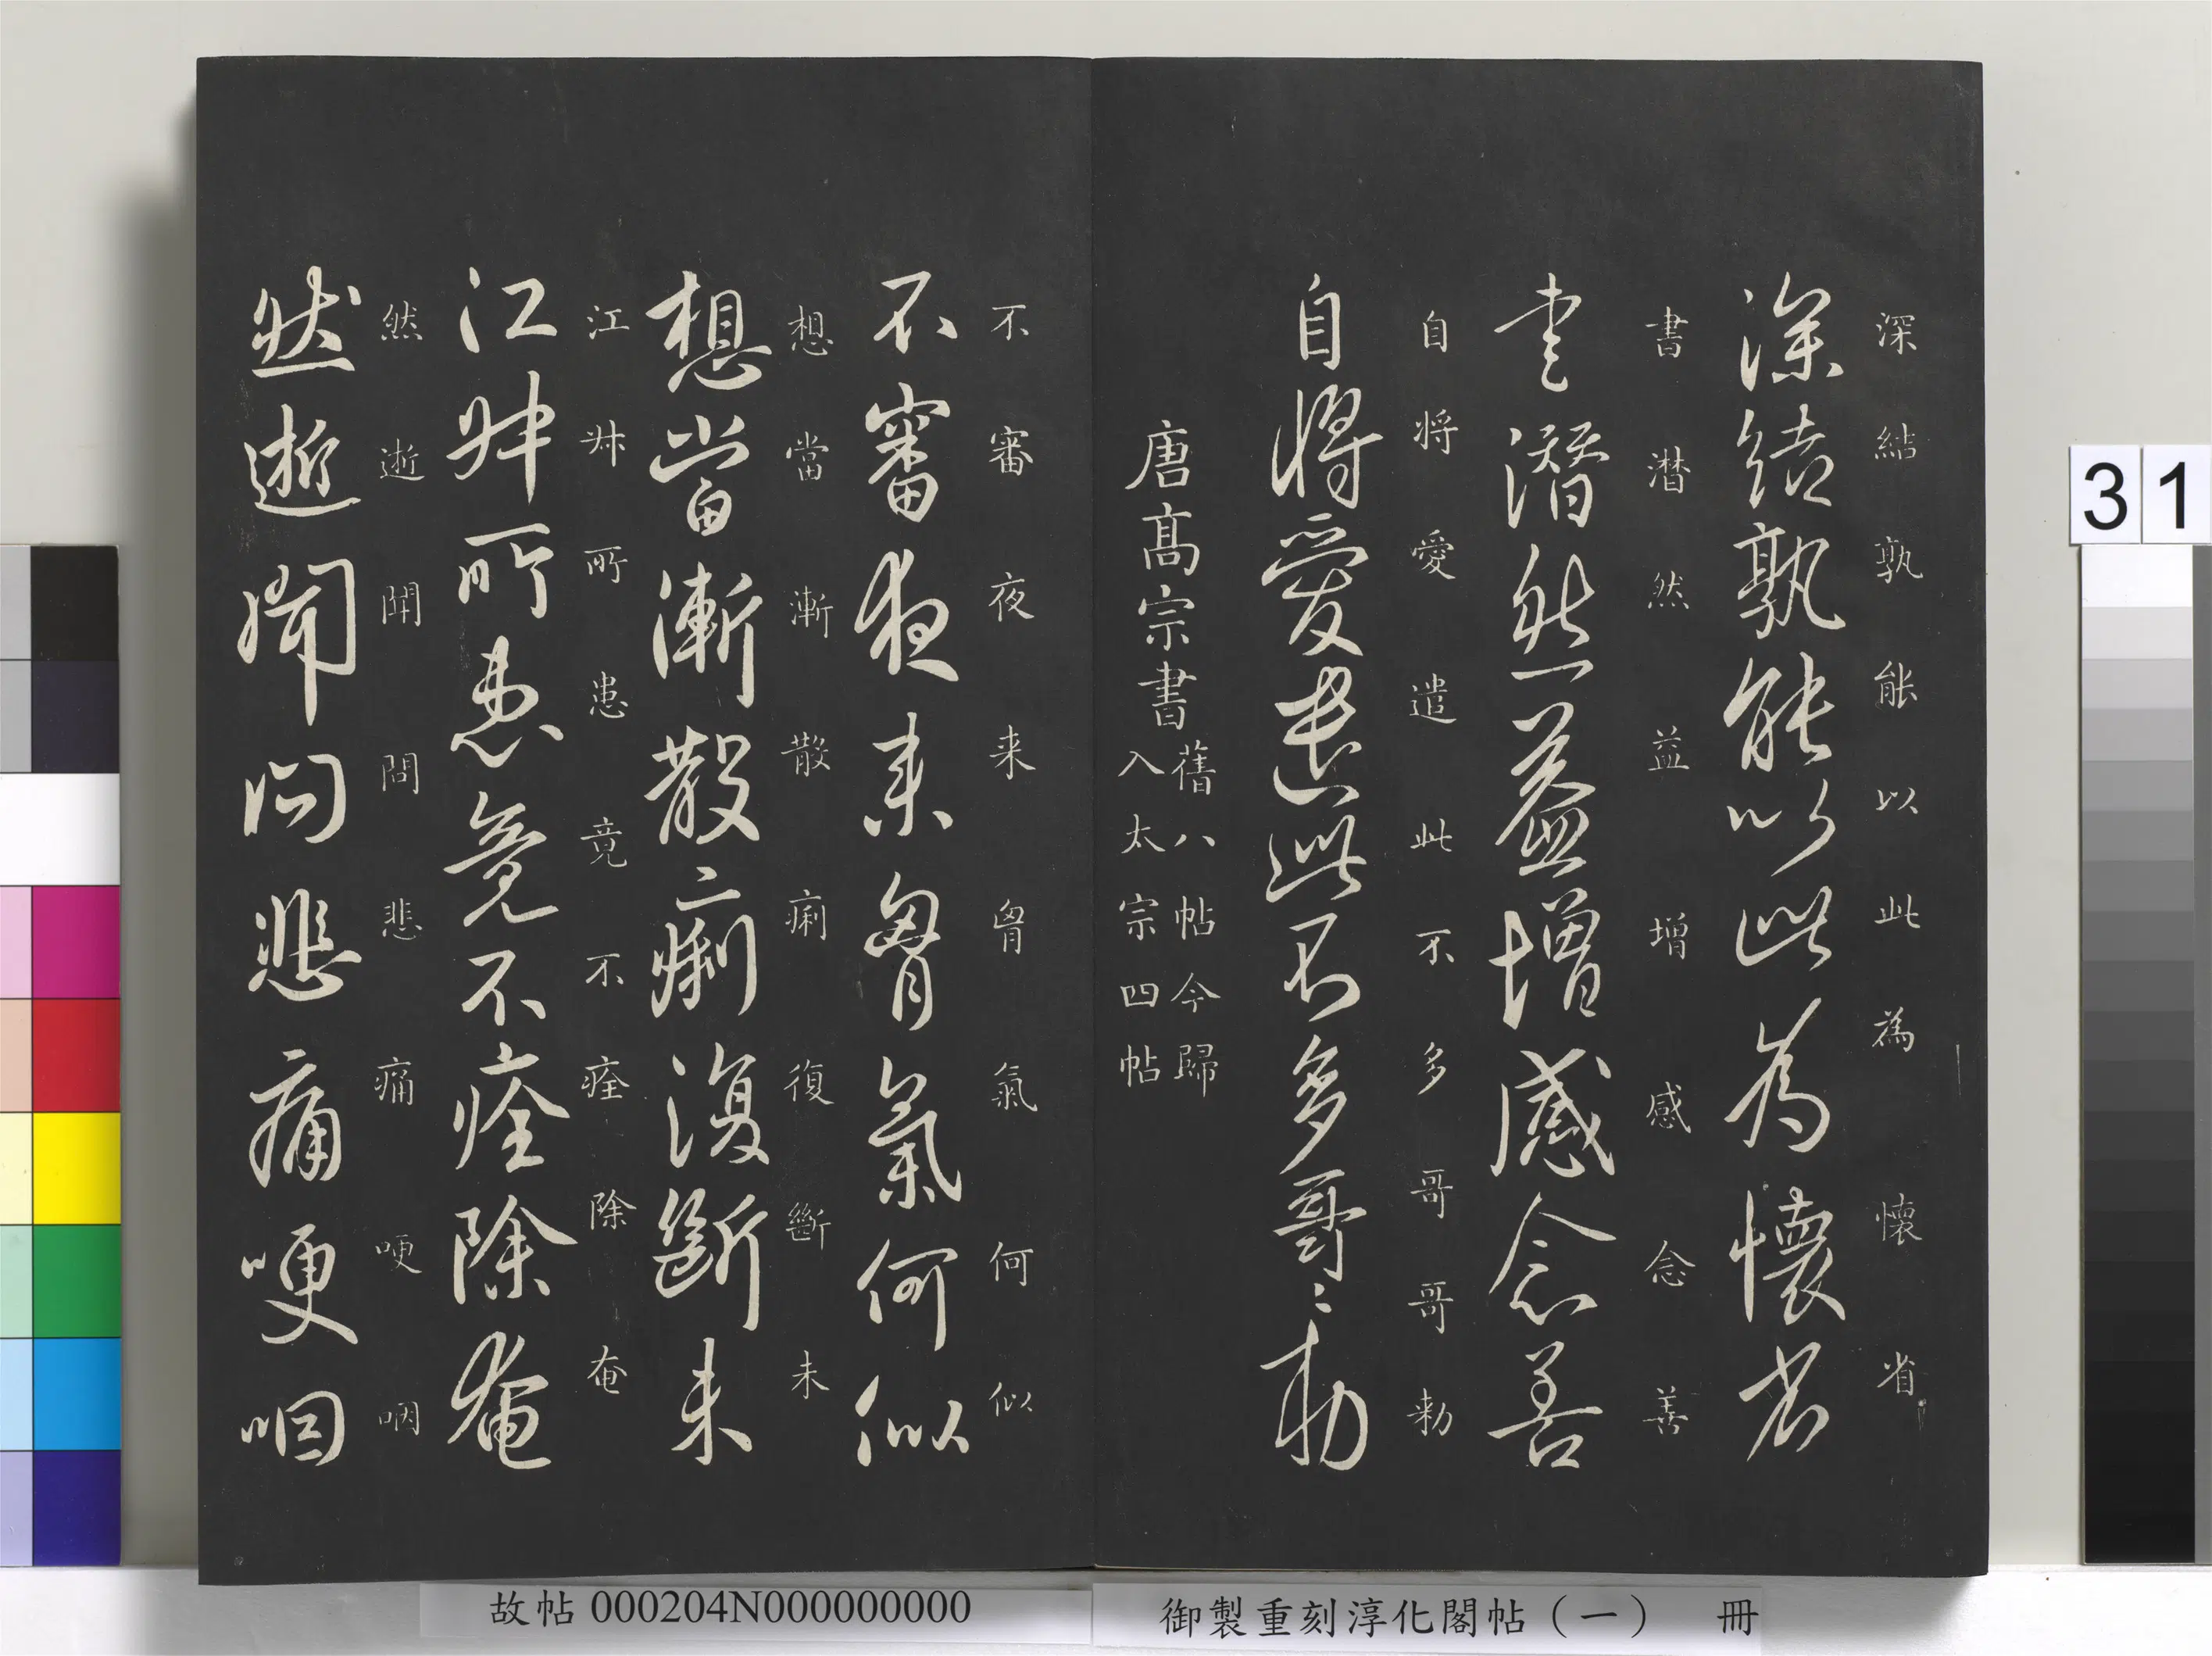 深結孰能以此為懷省
深結孰能以此為懷省
書潜然益增感念善
書潜然益增感念善
自将愛遣此不多哥哥勑
自将愛遣此不多哥〻勑
唐高宗書
舊八帖今歸
入太宗四帖
不審夜来胷氣何似
不審夜来胷氣何似
想當漸散痢復斷未
想當漸散痢復斷未
江舛所患竟不痊除奄
江舛所患竟不痊除奄
然逝聞問悲痛哽咽
然逝聞問悲痛哽咽
31
故帖 000204N000000000
御製重刻淳化閣帖（一） 冊